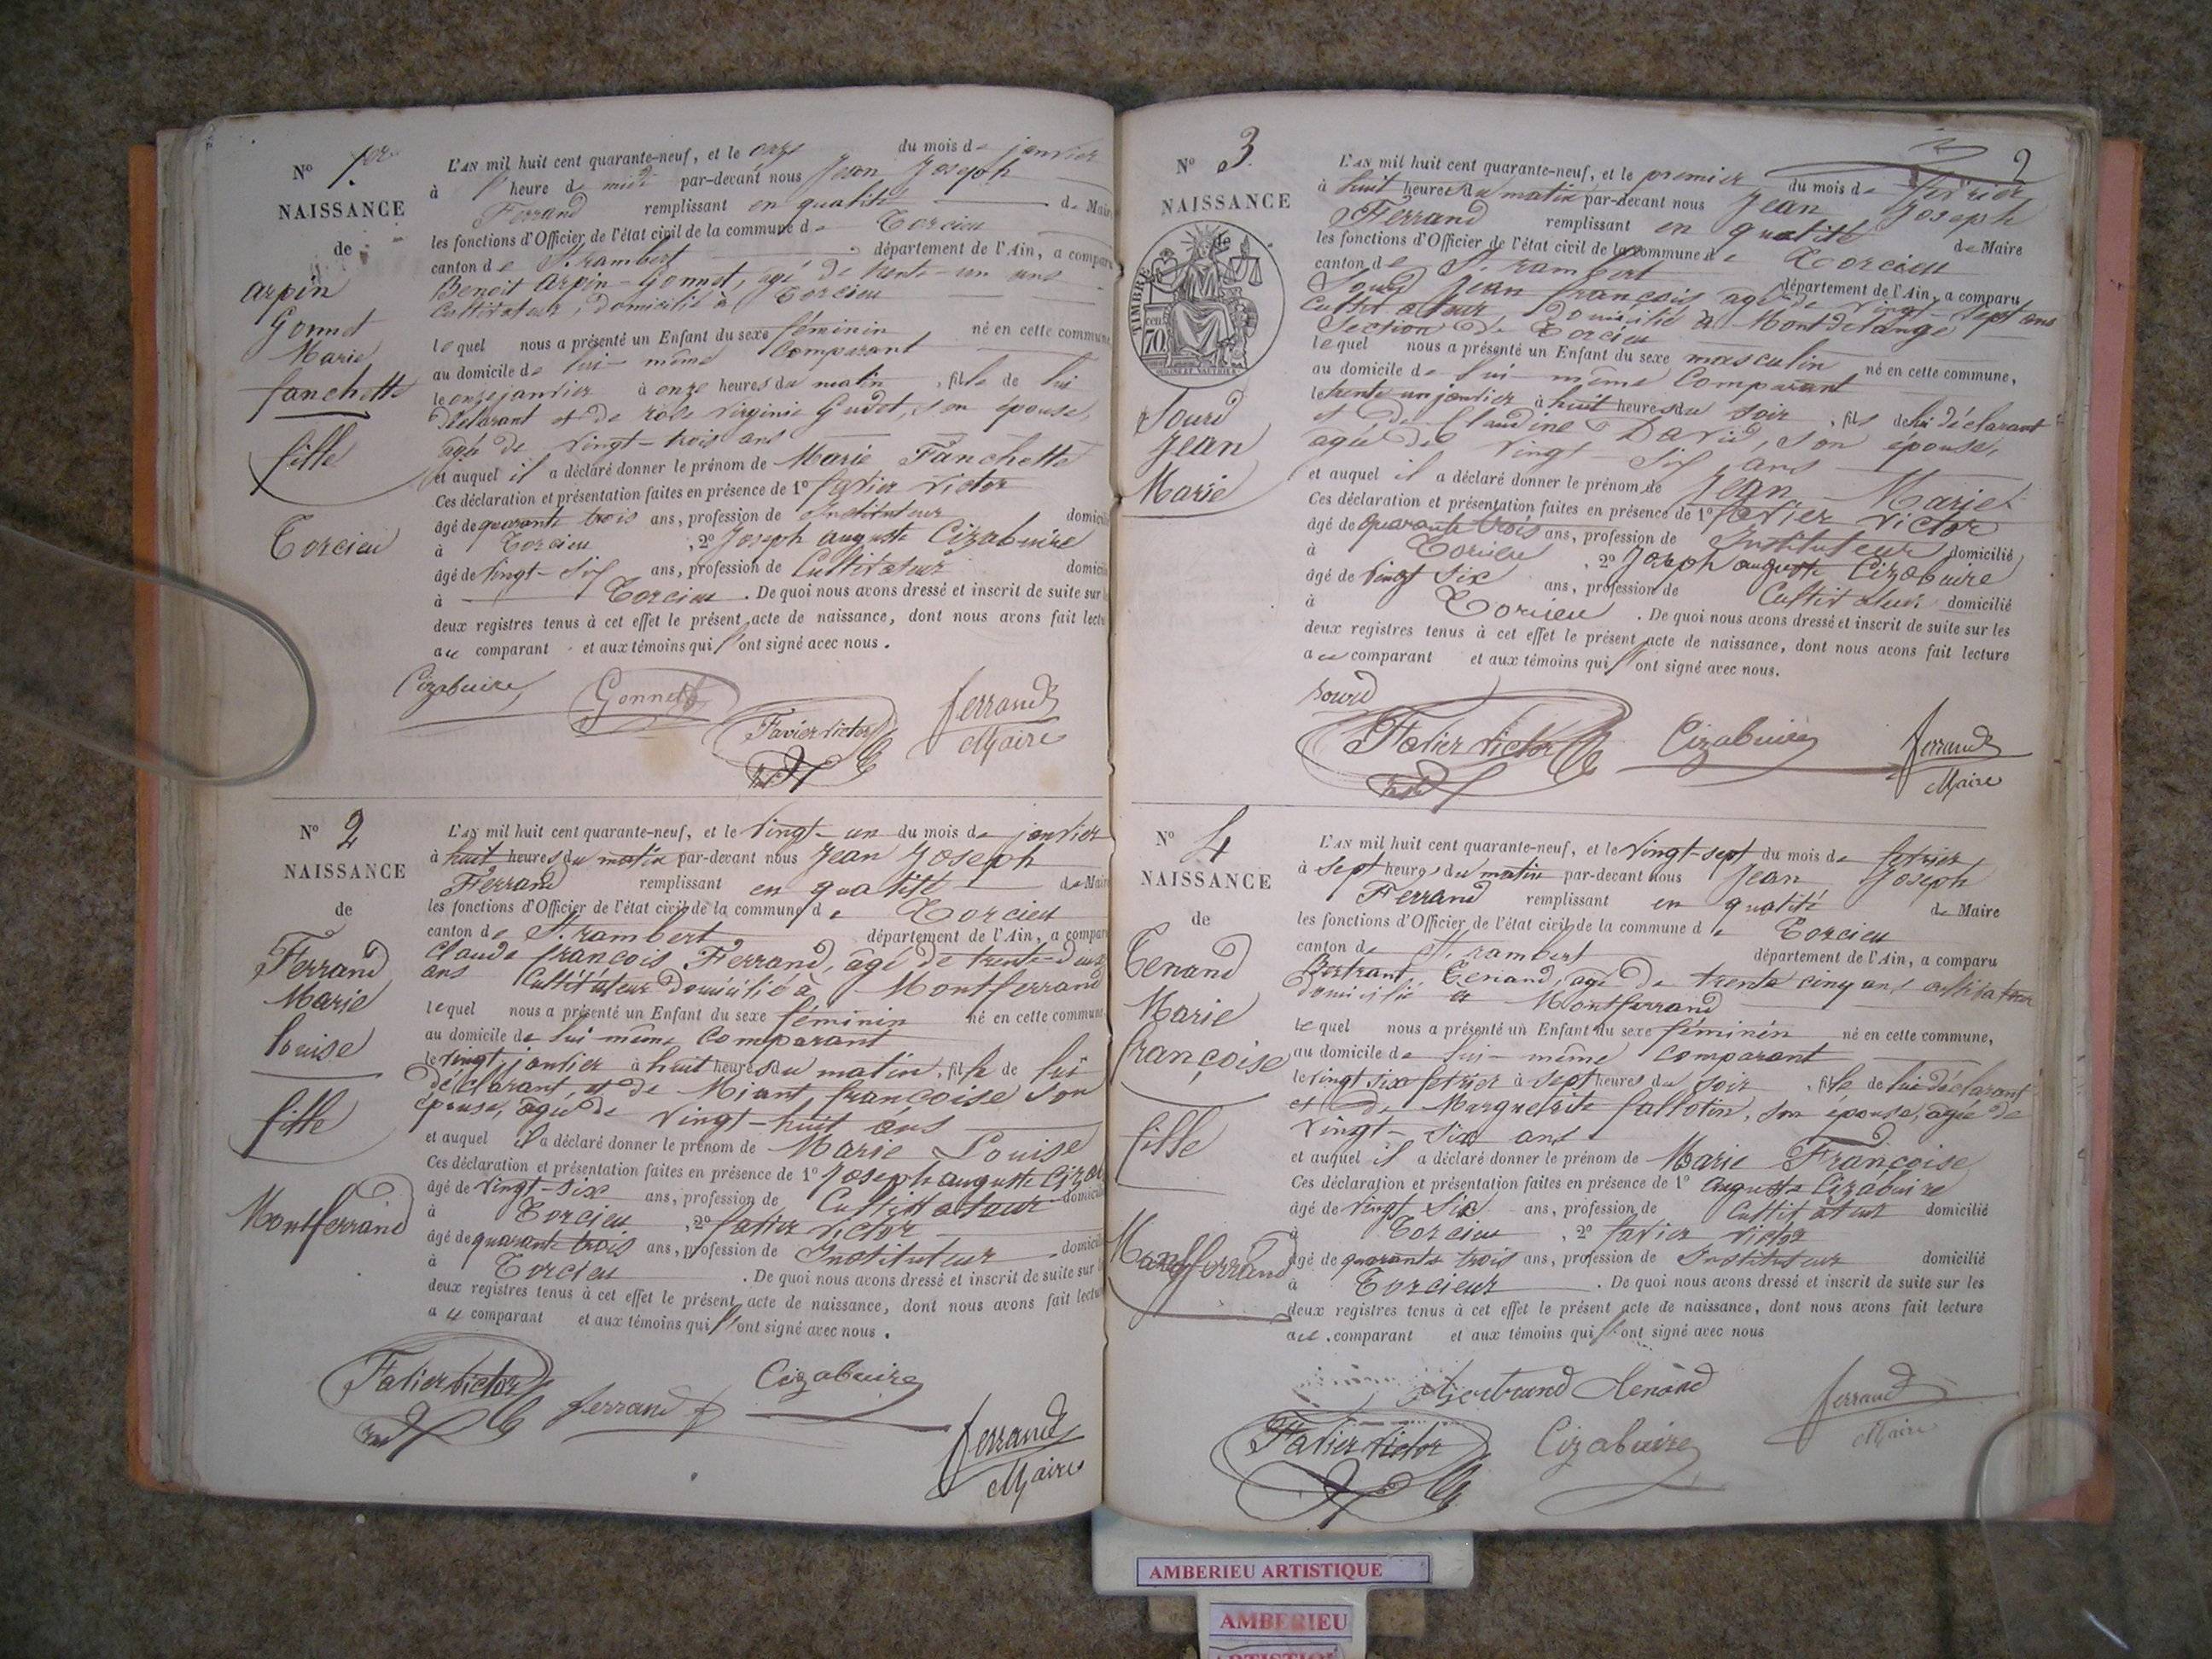 N° 1er
NAISSANCE
de
arpin
Gonnet
Marie
fanchette
fille
Torcieu
L'AN mil huit cent quarante-neuf, et le onze du mois de janvier
à heure de midi par-devant nous Jean Joseph
Ferrand remplissant en qualité de Mair
les fonctions d'Officier de l'état civil de la commune de Torcieu
canton de St. rambert département de l'Ain, a comparu
Benoit Arpin-Gonnet, agé de trente-un ans
Cultivateur, domicilié à Torcieu
lequel nous a présenté un Enfant du sexe féminin né en cette commune,
au domicile de lui-même Comparant
le onze janvier à onze heures du matin, fille de lui
déclarant et de rose Virginie Gudet, son épouse,
agée de vingt-trois ans
et auquel il a déclaré donner le prénom de Marie Fanchette
Ces déclaration et présentation faites en présence de 1° favier victor
âgé de quarante trois ans, profession de Instituteur domicilié
à Torcieu, 2° Joseph auguste Cizabuire
âgé de vingt-six ans, profession de Cultivateur domicilié
à Torcieu. De quoi nous avons dressé et inscrit de suite sur les
deux registres tenus à cet effet le présent acte de naissance, dont nous avons fait lecture
au comparant et aux témoins qui ont signé avec nous.
Cizabuire Gonnet Favier victor ferrand
Maire
N° 2
NAISSANCE
de
Ferrand
Marie
louise
fille
Montferrand
L'AN mil huit cent quarante-neuf, et le vingt-un du mois de janvier
à huit heures du matin par-devant nous Jean Joseph
Ferrand remplissant en qualité de Mair
les fonctions d'Officier de l'état civil de la commune de Torcieu
canton de St. rambert département de l'Ain, a comparu
Claude françois Ferrand, âgé de trente-deux
ans Cultivateur domicilié à Montferrand
lequel nous a présenté un Enfant du sexe féminin né en cette commune
au domicile de lui même Comparant
le vingt janvier à huit heures du matin, fille de lui
déclarant, et de Miant françoise son
épouse, âgée de vingt-huit ans
et auquel il a déclaré donner le prénom de Marie Louise
Ces déclaration et présentation faites en présence de 1° Joseph auguste Cizab
âgé de vingt-six ans, profession de Cultivateur domicilié
à Torcieu, 2° favier victor
âgé de quarante trois ans, profession de Instituteur domicilié
à Torcieu. De quoi nous avons dressé et inscrit de suite sur
deux registres tenus à cet effet le présent acte de naissance, dont nous avons fait lecture
au comparant et aux témoins qui ont signé avec nous.
Favier victor ferrand Cizabuire
ferrand
Maire
2
N° 3.
NAISSANCE
de
TIMBRE
70
Sourd
Jean
Marie
L'AN mil huit cent quarante-neuf, et le premier du mois de février
à huit heures du matin par-devant nous Jean Joseph
Ferrand remplissant en qualité de Maire
les fonctions d'Officier de l'état civil de la commune de Torcieu
canton de St. rambert département de l'Ain, a comparu
Sourd Jean françois agé de vingt-sept ans
Cultivateur, domicilié à Montdelange
Section de Torcieu
lequel nous a présenté un Enfant du sexe masculin né en cette commune,
au domicile de lui-même Comparant
le trente un janvier à huit heures du soir, fils de lui déclarant
et de Claudine David, son épouse,
agée de vingt-six ans
et auquel il a déclaré donner le prénom de Jean Marie
Ces déclaration et présentation faites en présence de 1° favier victor
âgé de quarante trois ans, profession de Instituteur domicilié
à Torcieu, 2° Joseph auguste Cizabuire
âgé de vingt six ans, profession de Cultivateur domicilié
à Torcieu. De quoi nous avons dressé et inscrit de suite sur les
deux registres tenus à cet effet le présent acte de naissance, dont nous avons fait lecture
au comparant et aux témoins qui ont signé avec nous.
Sourd
Favier victor Cizabuire ferrand
Maire
N° 4
NAISSANCE
de
Tenand
Marie
françoise
fille
Montferrand
L'AN mil huit cent quarante-neuf, et le vingt-sept du mois de février
à sept heures du matin par-devant nous Jean Joseph
Ferrand remplissant en qualité de Maire
les fonctions d'Officier de l'état civil de la commune de Torcieu
canton de St. rambert département de l'Ain, a comparu
Bertrant, Tenand, agé de trente cinq ans cultivateur
domicilié à Montferrand
lequel nous a présenté un Enfant du sexe féminin né en cette commune,
au domicile de lui-même comparant
le vingt six fevrier à sept heures du soir, fille de lui déclarant
et de Marguerite fallotin, son épouse, agée de
vingt-six ans
et auquel il a déclaré donner le prénom de Marie Françoise
Ces déclaration et présentation faites en présence de 1° auguste Cizabuire
âgé de vingt six ans, profession de Cultivateur domicilié
à Torcieu, 2° favier victor
âgé de quarante trois ans, profession de Instituteur domicilié
à Torcieu. De quoi nous avons dressé et inscrit de suite sur les
deux registres tenus à cet effet le présent acte de naissance, dont nous avons fait lecture
au comparant et aux témoins qui ont signé avec nous
Bertrand tenand ferrand
Maire
Favier victor Cizabuire
AMBERIEU ARTISTIQUE
AMBERIEU
ARTISTIQUE